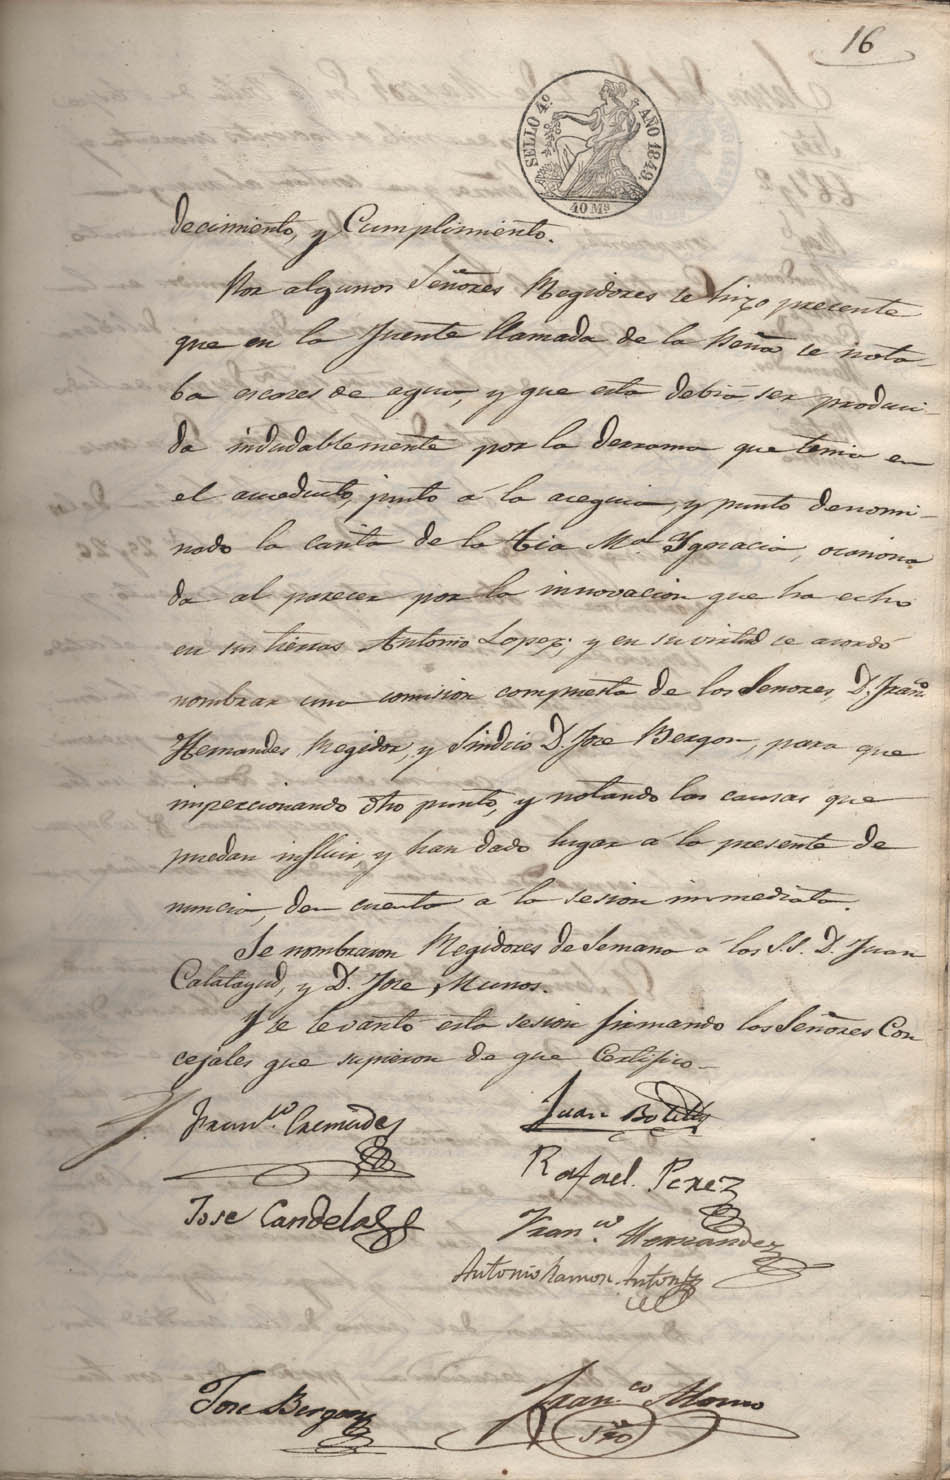 16
SELLO 4º AÑO 1849.
40 Mˢ
decimiento, y Cumplimiento.
Por algunos Señores Regidores se hizo presente
que en la fuente llamada de la Peña se nota-
ba escases de agua, y que esta debia ser produci-
da indudablemente por la derrama que tenia en
el acueducto, junto á la acequia, y punto denomi-
nado la canta de la tia Mª Ygnacia, ocasiona
da al parecer por la innovacion que ha echo
en sus tierras Antonio Lopez; y en su virtud se acordó
nombrar una comision compuesta de los Señores, D. Franᶜᵒ
Hernandes Regidor, y Sindico D. Jose Bergon, para que
inspeccionando dho punto, y notando las causas que
puedan influir, y han dado lugar á la presente de
nuncia, den cuenta á la sesion inmediata.
Se nombraron Regidores de Semana a los S.S. D. Juan
Calatayud, y D. Jose Munos.
Y se levantó esta sesion firmando los Señores Con
cejales que supieron de que Certifico—
Franᶜᵒ. Cremades
Juan Botella
Rafael Perez
Jose Candela
Franᶜᵒ. Hernandez
Antonio Ramon Anton
Jose Bergon
Franᶜᵒ Alonso
Srio